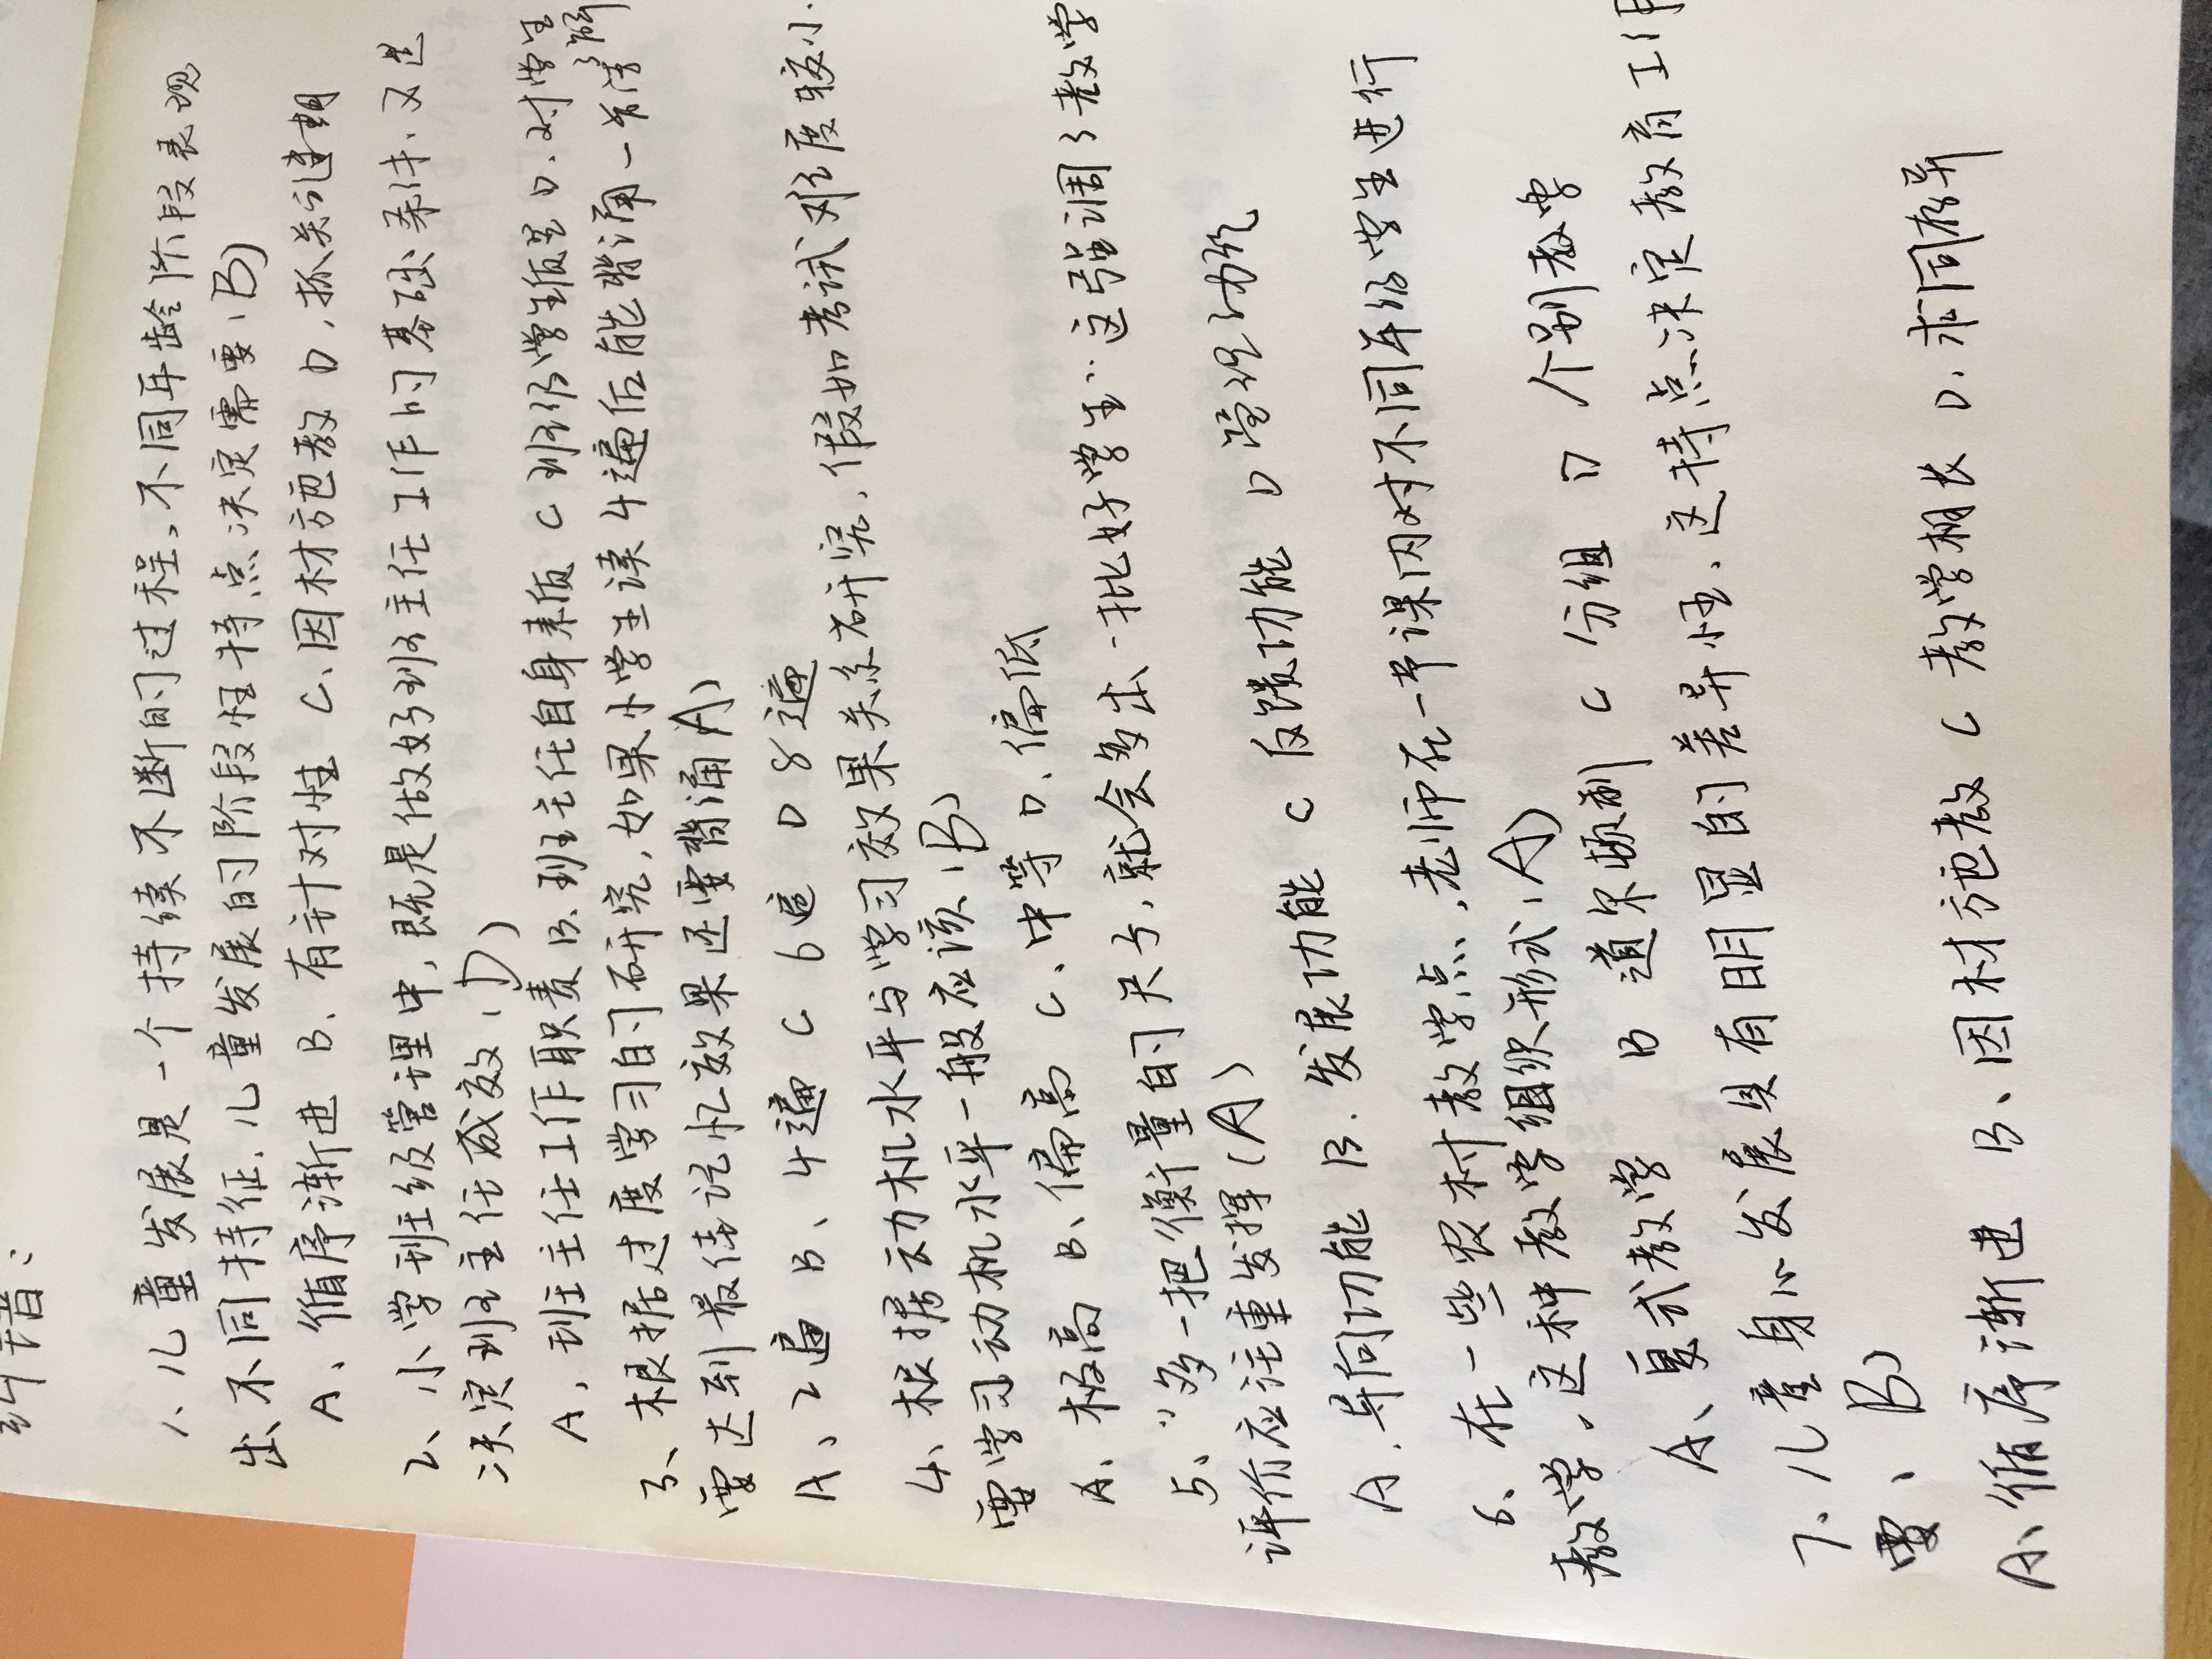 纠错：
1、儿童发展是一个持续不断的过程。不同年龄阶段表现
出不同特征.儿童发展的阶段性特点决定需要(B)
A、循序渐进 B、有针对性 C、因材施教 D、抓关键期
2、小学班级管理中,既是做好班主任工作的基础条件、又是
决定班主任成效(D)
A、班主任工作职责 B、班主任自身素质 C 班级学生质量 D、对学生
了解
3、根据过度学习的研究,如果小学生读4遍后能背诵一首诗
要达到最佳记忆效果还要背诵A)
A、2遍 B、4遍 C 6遍 D 8遍
4、根据动机水平与学习效果关系研究,假如考试难度较小.
要学习动机水平一般应该(B)
A、极高 B、偏高 C、中等 D、偏低
5、“多一把衡量的尺子,就会多出一批好学生”这强调了教学
评价应注重发挥(A)
A.导向功能 B.发展功能 C 反馈功能 D 管理功能
6、在一些农村教学点,老师在一节课内对不同年级学生进行
教学。这种教学组织形式(A)
A、复式教学 B 道尔顿制 C 分组 D 个别教学
7、儿童身心发展具有明显的差异性.这特点决定教育工作
要(B)
A、循序渐进 B、因材施教 C 教学相长 D、求同存异